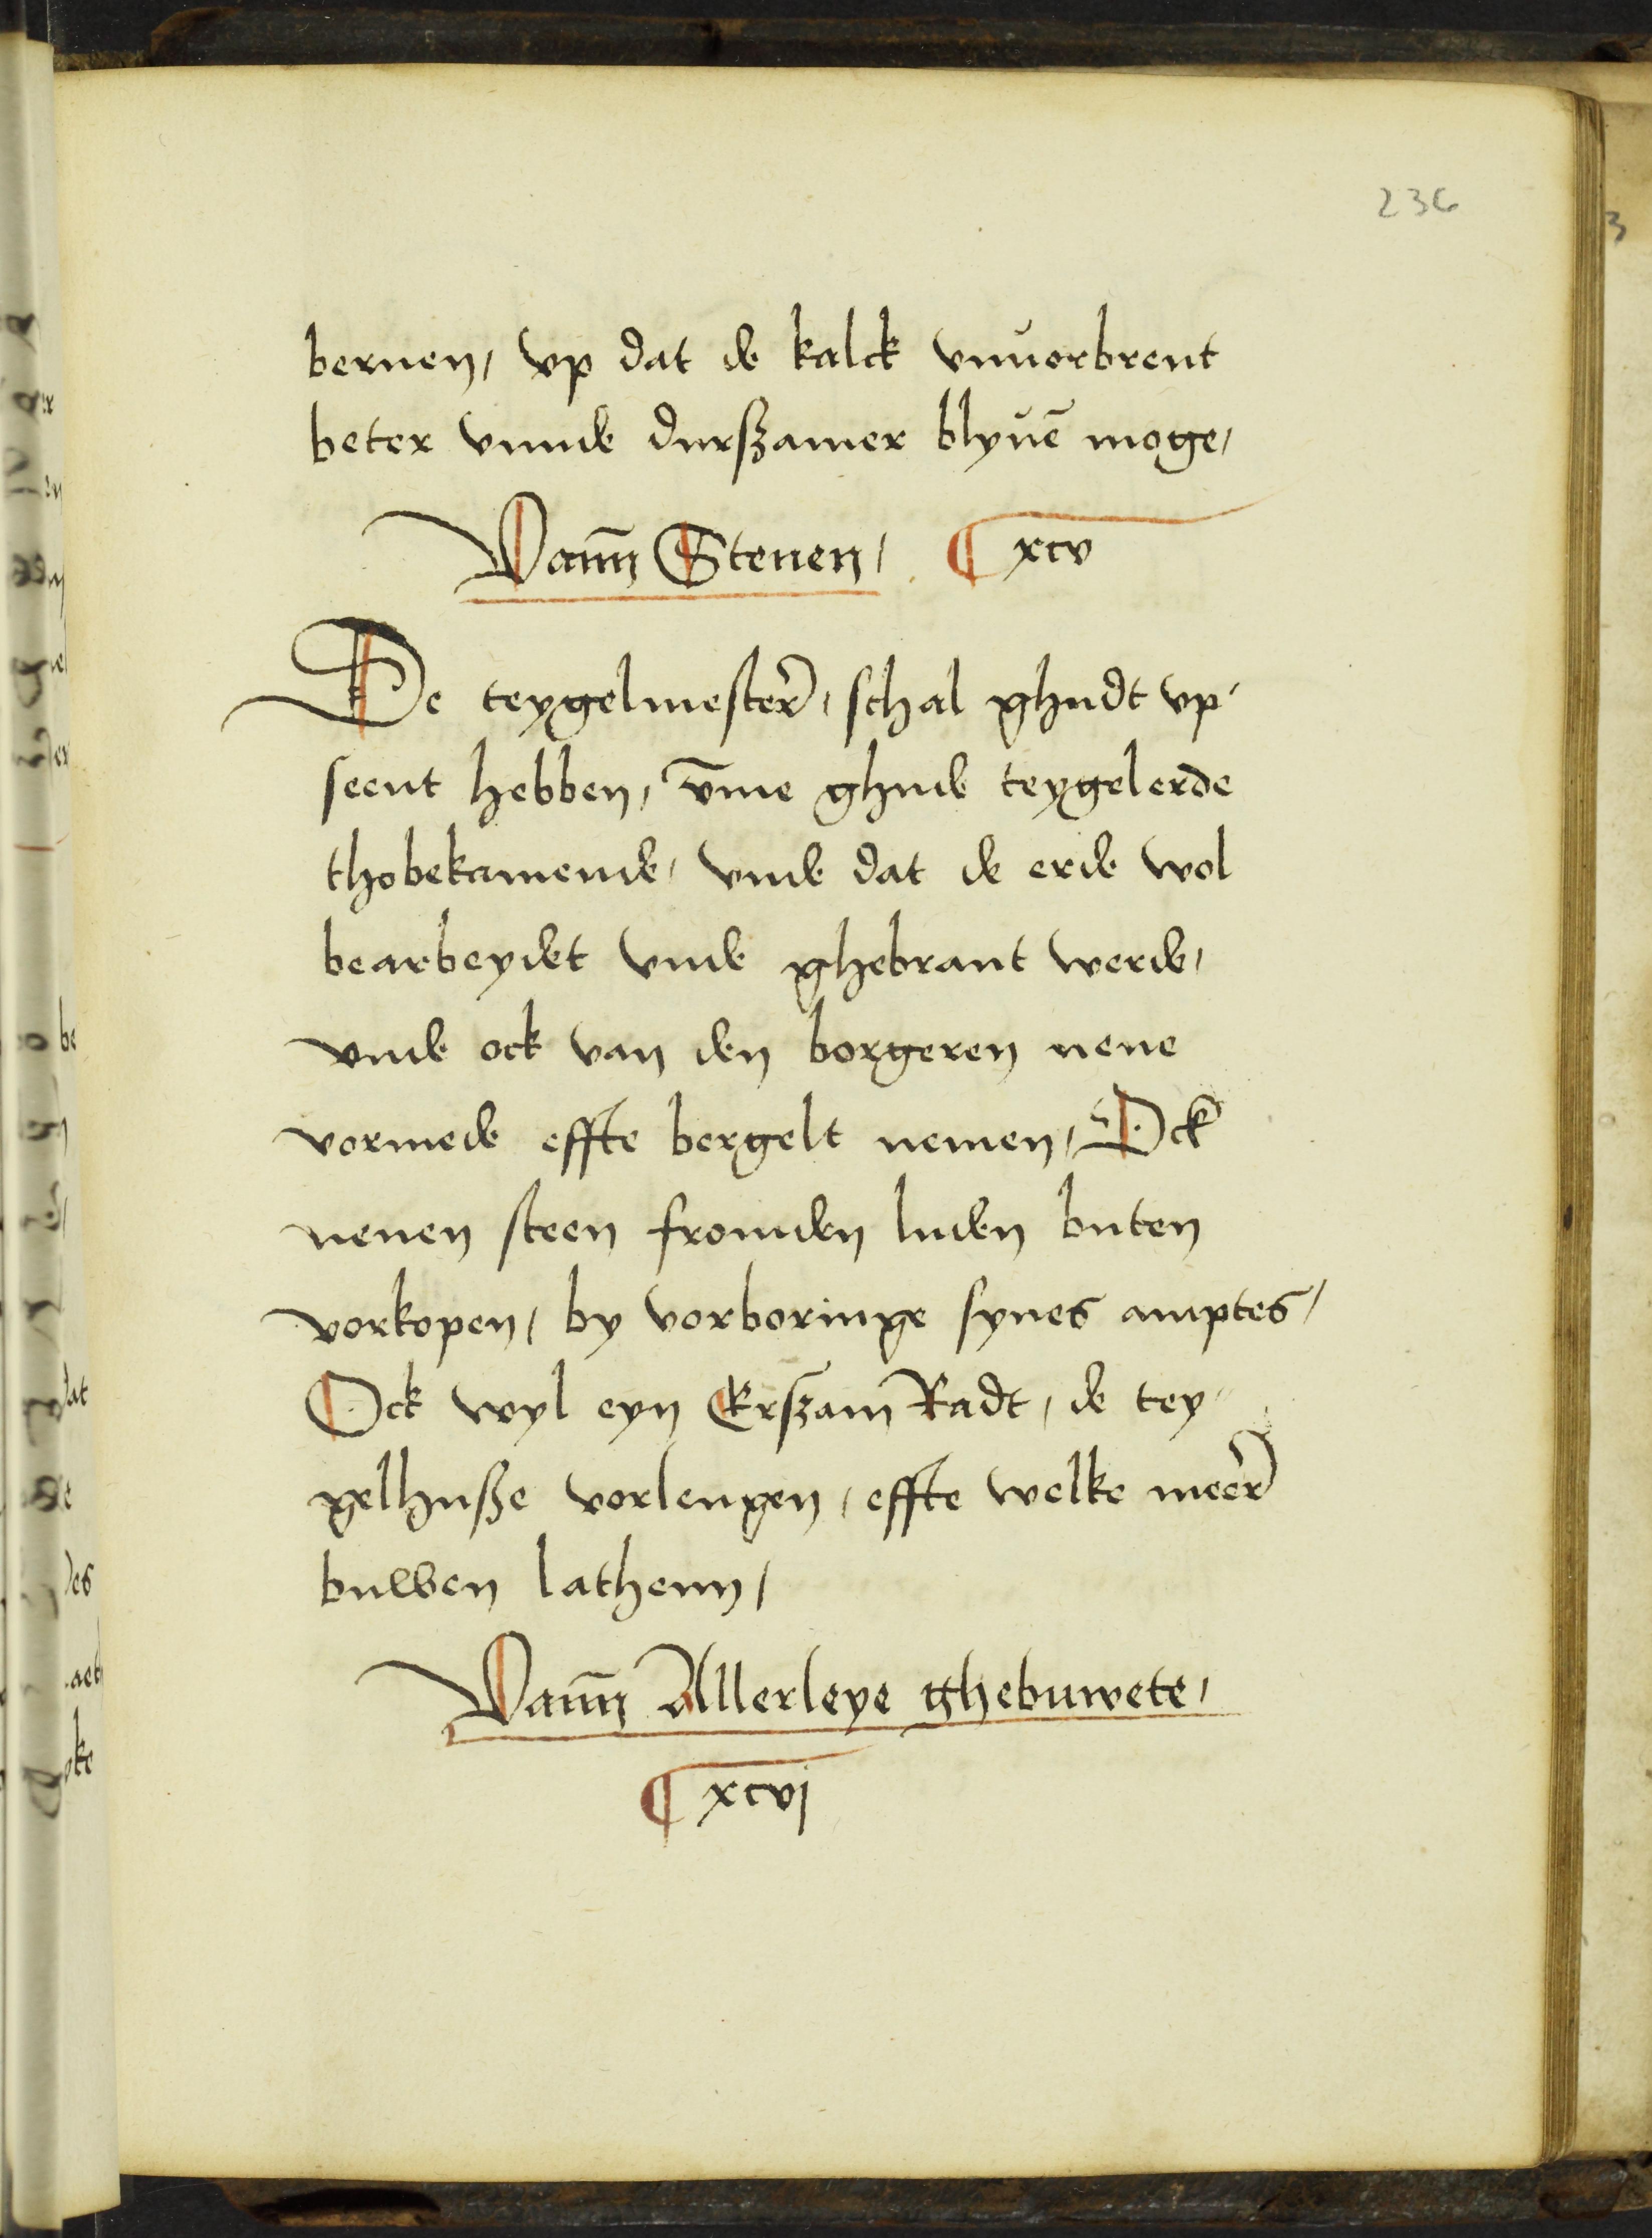 236
bernen, vp dat de kalck vnuorbrent
beter vnnde durßamer blyuē moge,
Vann̄ Stenen, ¶ xcv
De teygelmester, schal ghudt vp-
seent hebben, v̄me ghude teygelerde
thobekamende, vnde dat de erde wol
bearbeydet vnde ghebrant werde,
vnde ock van den borgeren nene
vormede effte bergelt nemen, Ock
nenen steen fromden luden buten
vorkopen, by vorboringe synes amptes,
Ock wyl eyn Erßam Radt, de tey-
gelhuße vorlengen, effte welke meer
buwen lathenn,
Vann̄ Allerleye ghebuwete,
¶ xcvj